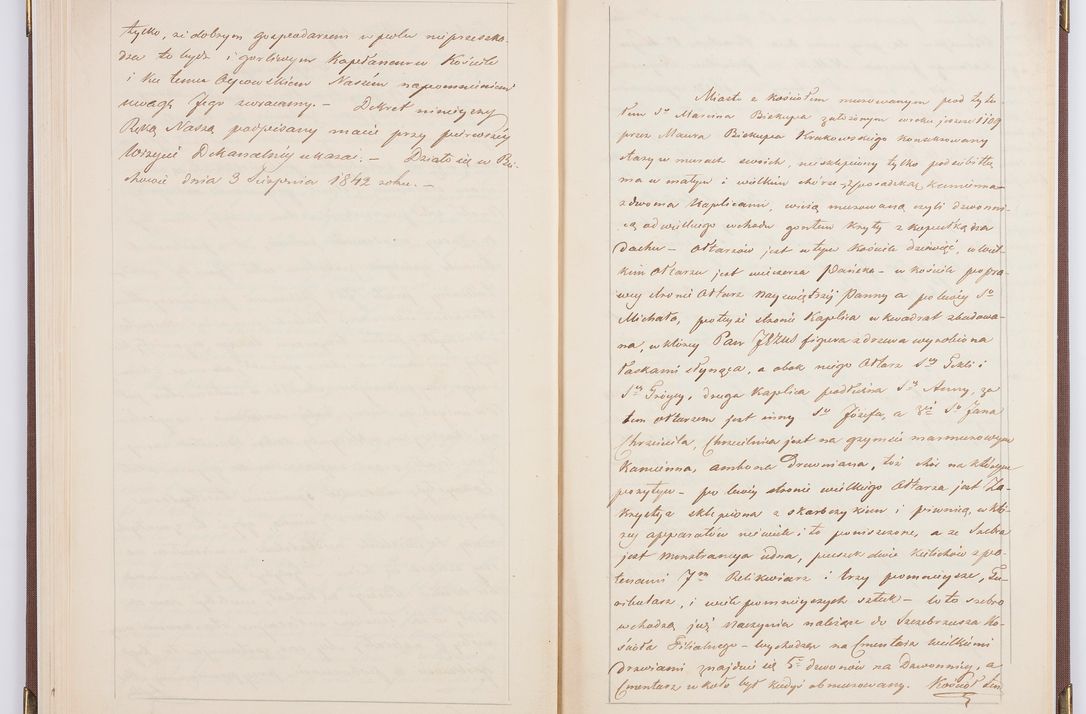 tylko, że dobrym gospodarzem w polu nieprzeszko-
dza to bydź i gorliwym Kapłanem w Kościele
i ku temu Oycowskiem Naszem napomnieniem
uwagę Jego zwracamy. – Dekret ninieyszy
Ręką Naszą podpisany macie przy pierwszéy
Wizycie Dekanalnéy okazać. – Działo się w Bo-
chowie dnia 3 Sierpnia 1842 roku. –
Miasto z kościołem murowanym pod tytu-
łem Sgo Marcina Biskupa założonym w roku jeszcze 1109
przez Maura Biskupa Krakowskiego konsekrowany
stary w murach swoich, niesklepiony tylko podsiębitkę
ma w małym i wielkim chórze, z posadzką kamienną
z dwoma Kaplicami, wieżą murowaną czyli dzwonni-
cą od wielkiego wchodu gontem kryty z kopułką na
dachu – Ołtarzów jest w tym kościele dziewięć, w wiel-
kim Ołtarzu jest wieczerza Pańska – w kościele po pra-
wey stronie Ołtarz Nayświętszéj Panny a po lewéy Sgo
Michała, po teyże stronie Kaplica w kwadrat zbudowa-
na, w którey Pan JEZUS figura z drzewa wyrobiona
łaskami słynąca, a obok niego Ołtarz Stey Tekli i
Stey Tróycy, druga Kaplica podobna Stey Anny, za
tem ołtarzem jest inny Sgo Józefa, a 3ci Sgo Jana
Chrzciciela, Chrzcielnica jest na gzymsie marmurowym
kamienna, ambona drewniana, tóż chór na którym
pozytyw – po lewéy stronie wielkiego Ołtarza jest Za-
krystya sklepiona z skarbczykiem i piwnicą, w któ-
rey apparatów niewiele i to poniszczone, a ze Srebra
jest Monstrancya iedna, puszek dwie kielichów z pa-
tenami 7m Relikwiarz i trzy pomnieysze, Tu-
ribularz, i wiele pomnieyszych sztuk – w to srebro
wchodzą już Naczynia należące do Szczebrzusza Ko-
ścioła Filialnego – wychodząc na Cmentarz wielkiemi
drzwiami znajduie się 5m dzwonów na Dzwonnicy, a
Cmentarz w koło był kiedyś obmurowany. Kościół ten